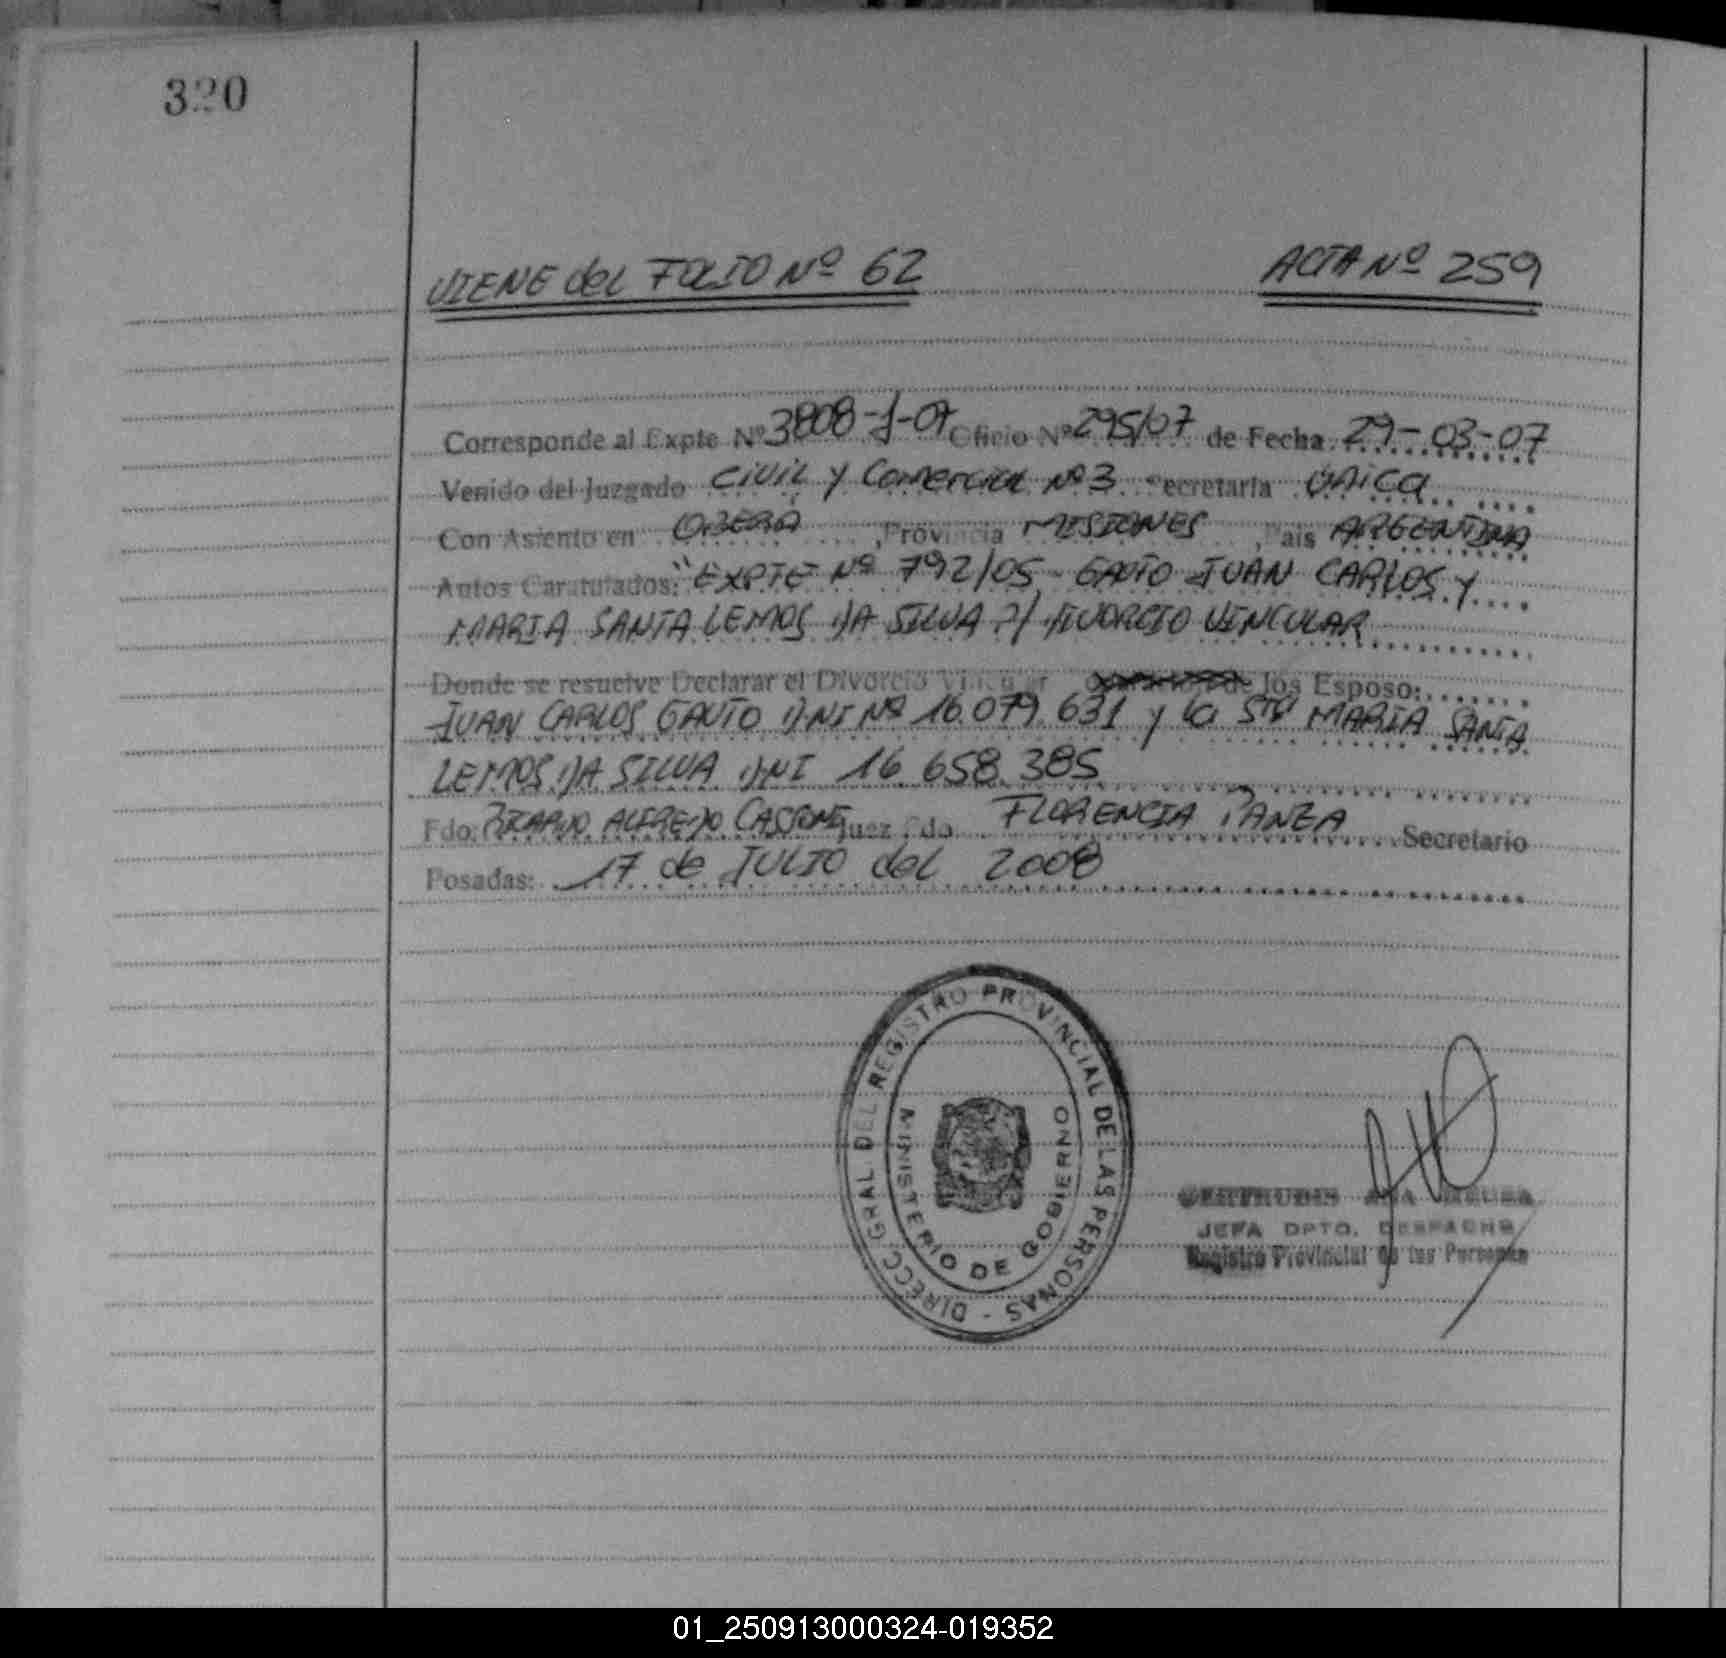 320
VIENE del FOLIO Nº 62 ACTA Nº 259
Corresponde al Expte Nº 3808-J-07 Oficio Nº 295/07 de Fecha 29-03-07
Venido del Juzgado Civil y Comercial Nº 3 Secretaria Única
Con Asiento en OBERÁ, Provincia MISIONES, Pais ARGENTINA
Autos Caratulados: "EXPTE Nº 792/05 - GAUTO JUAN CARLOS y
MARIA SANTA LEMOS DA SILVA S/ DIVORCIO VINCULAR
Donde se resuelve Declarar el Divorcio Vincular de los Esposo:
JUAN CARLOS GAUTO DNI Nº 16.079.631 y la Sra MARIA SANTA
LEMOS DA SILVA DNI 16.658.385
Fdo: RICARDO ALFREDO CASSONI Juez Fdo FLORENCIA PANZA Secretario
Posadas: 17 de JULIO del 2008
DIRECC. GRAL. DEL REGISTRO PROVINCIAL DE LAS PERSONAS -
MINISTERIO DE GOBIERNO
GERTRUDIS
JEFA DPTO. DESPACHO
Registro Provincial de las Personas
01_250913000324-019352